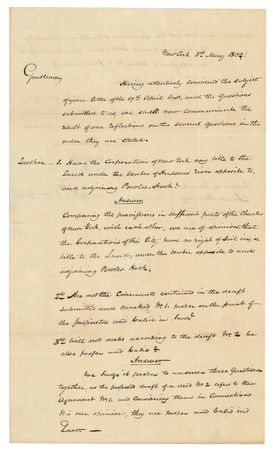 New York 3d May, 1804.
Gentlemen
Having attentively considered the subject
of your letter of the 19th April last, and the Questions
submitted to us, we shall now communicate the
result of our reflections on the several Questions in the
order they are stated.
Question - 1. Have the Corporation of New York any title to the
Land under the Water of Hudsons River opposite to,
and adjoining Powles Hook?
Answer
Comparing the provisions in different parts of the Charter
of New York, with each other, we are of opinion, that
the Corporation of this City, have no right of soil in or
title to the Land, under the Water opposite to and
adjoining Powles Hook.
2d Are not the Covenants contained in the draft
submitted and marked No 1. proper on the part of
the proprietors and Valid in Law?
3d Will not deeds according to the draft No 2. be
also proper and Valid?
Answer
We judge it proper to answer these Questions
together, as the proposed draft of a deed No 2. refers to the
Agreement No 1. and considering them in Connection
It is our opinion, they are proper and Valid in
Law.